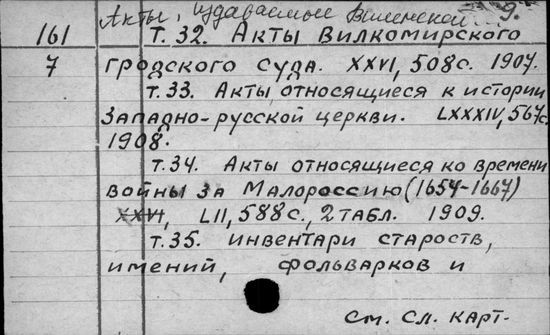 Акты, издаваемые Виленской 9.
161 Т. 32. Акты Вилкомирского
7 гродского суда. XXVI, 508 с. 1907.
т. 33. Акты, относящиеся к истории
Западно-русской церкви. LXXXIV, 567 с.
1908.
т. 34. Акты относящиеся ко времени
войны за Малороссию (1654-1667)
XXVI, LII, 588 с., 2 табл. 1909.
т. 35. инвентари староств,
имений, фольварков и
См. сл. карт.